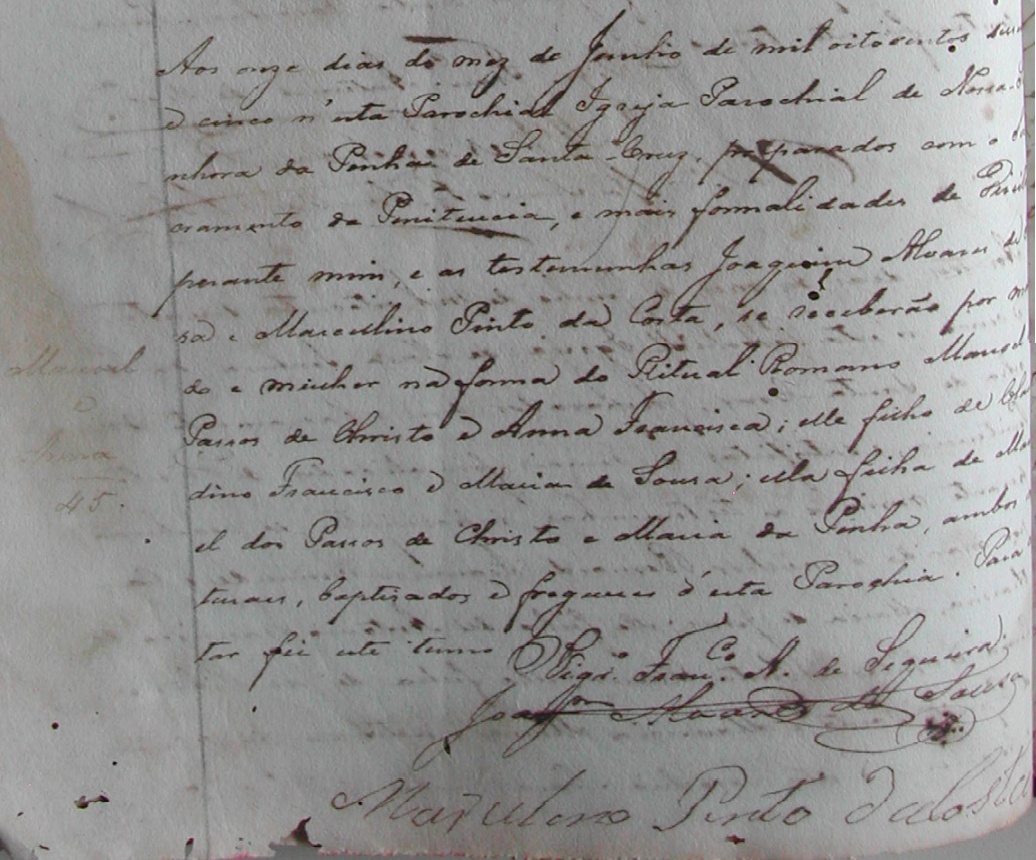 Aos onze dias do mez de Junho de mil oitocentos
e cinco n'esta Parochial Igreja Parochial de Nossa
nhora da Penha de Santa-Cruz, preparados com o
cramento da Penitencia, e mais formalidades de
perante mim, e as testemunhas Joaquim Alvares de
sa e Marculino Pinto da Costa, se receberão por
do e mulher na forma do Ritual Romano Manoel
Passos de Christo e Anna Francisca; elle filho de
dino Francisco e Maria de Sousa; ella filha de
el dos Passos de Christo e Maria da Penha, ambos
turaes, baptisados e freguezes d'esta Parochia. Para
tar fiz este termo
Vigr.o Fran.co A. de Siqueira
Joaqm Alvares de Sousa
Marculino Pinto da Costa
Manoel
e
Anna
45.